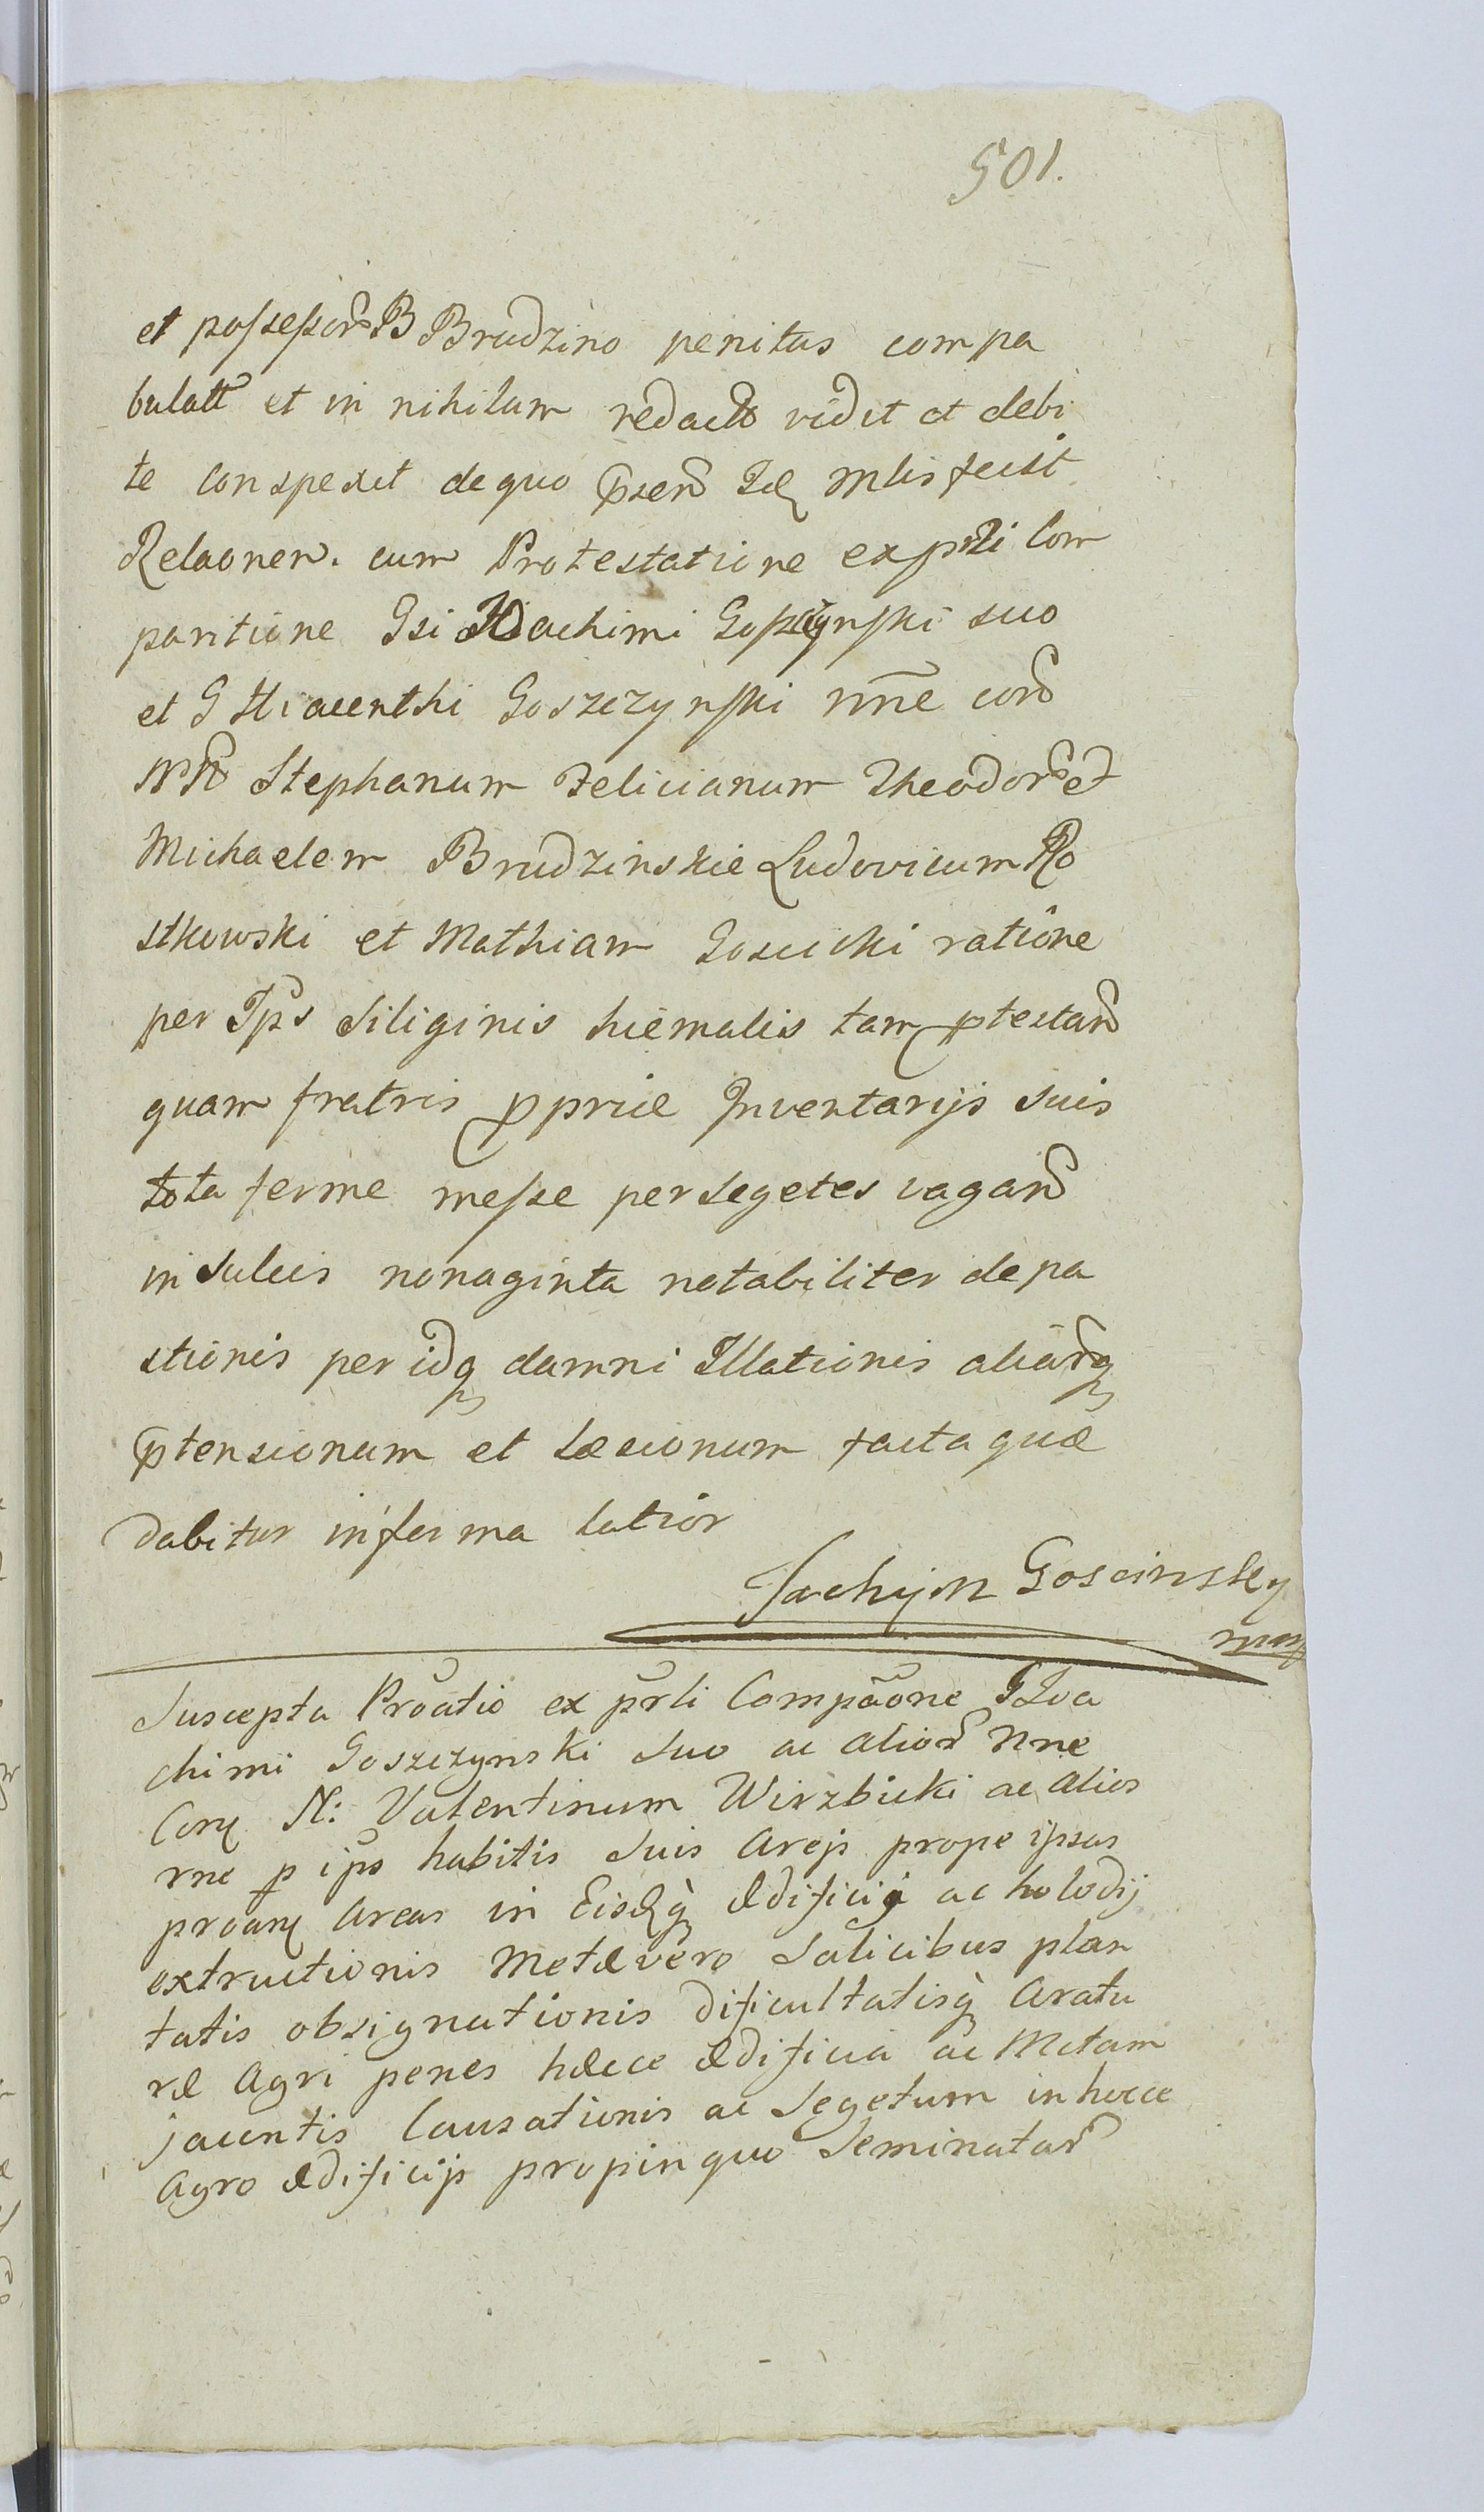 501.
et possessorũ B Brudzino penitus compa
bulatũ et in nihilum redactũ vidit et debi
te conspexit de quo p̃sens Idẽ Mlis fecit
Relaonem. cum Protestatione ex psłi Com
paritione Gsi Joachimi Goszczynski suo
et G Hiacenthi Goszczynski nñe corã
NN Stephanum Felicianum Theodorũ et
Michaelem Brudzinskie Ludovicum Ro
stkowski et Mathiam Goscicki ratione
per Ips Siliginis hiemalis tam ptestant
quam fratris ppriæ Inventarijs suis
tota ferme messe per segetes vagant
in sulcis nonaginta notabiliter depa
stionis per idq damni Illationis aliarq
ptensionum et Læsionum facta quæ
dabitur in ferma latior
Jachijm Goscinsky
mp
Suscepta Proatio ex prłi Compãone G Joa
chimi Goszczynski suo ac aliorũ Nne
Corã N: Valentinum Wirzbicki ac alios
rne p ips habitis suis Arejs prope ipsas
proañ Areas in Eisdq̀ ædificij ac holodij
extructionis Metæ vero Salicibus plan
tatis obsignationis dificultatisq̀ Aratu
ræ Agri penes hæcce ædificia ac Metam
jacentis Causationis ac Segetum in hocce
Agro ædificijs propinquo Seminatarũ